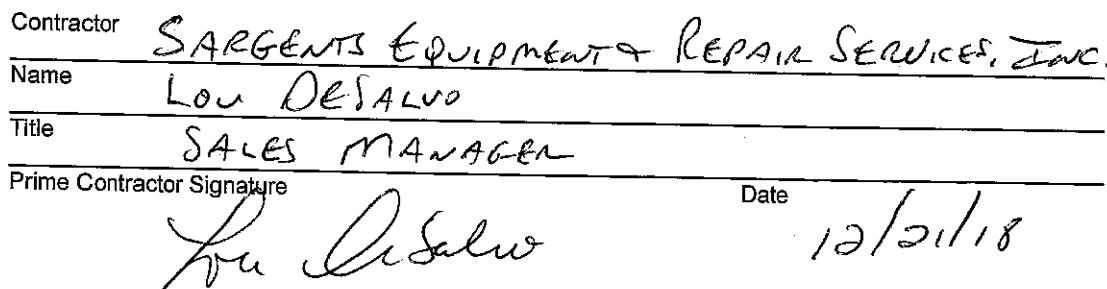 Contractor SARGENTS EQUIPMENT & REPAIR SERVICES, INC.
Name LOU DESALVO
Title SALES MANAGER
Prime Contractor Signature Date
Lou DeSalvo 12/21/18